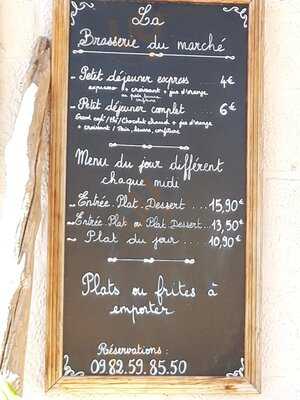 La
Brasserie du marché
- Petit déjeuner express 4€
expresso + croissant + jus d'orange
ou pain beurre
confiture
- Petit déjeuner complet 6€
Grand café/thé/chocolat chaud + jus d'orange
+ croissant / Pain, beurre, confiture
Menu du jour différent
chaque midi
- Entrée. Plat. Dessert ... 15,90€
- Entrée. Plat ou Plat. Dessert ... 13,50€
- Plat du jour .... 10,90€
Plats ou frites à
emporter
Réservations :
09.82.59.85.50